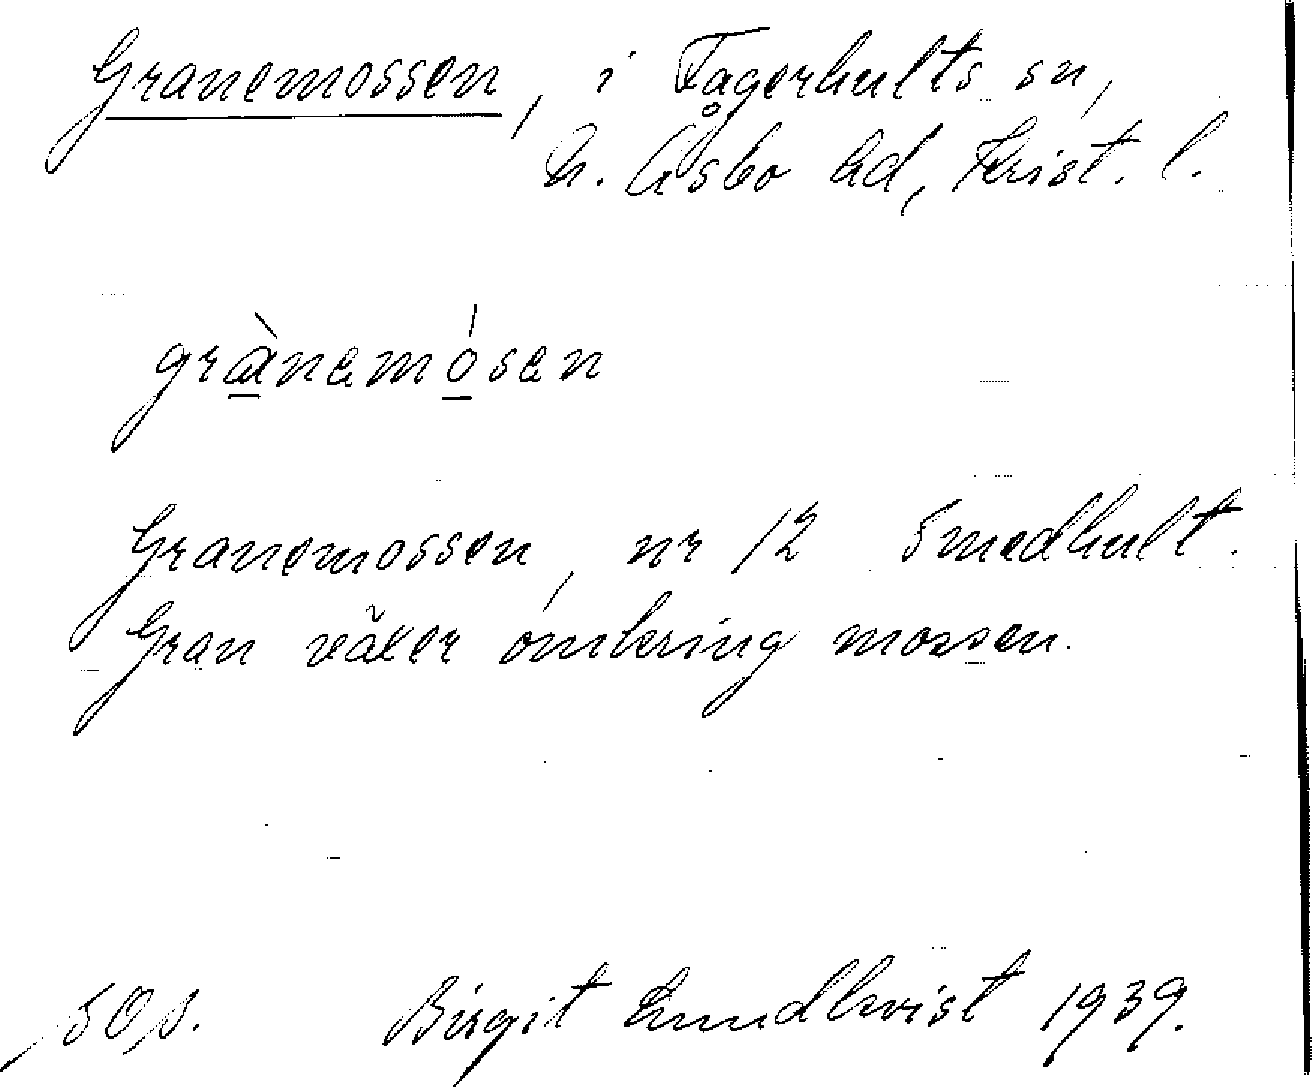 Granemossen, i Fagerhults sn,
N. Åsbo hd, Krist. l.
grànemósen
Granemossen, nr 12 Smedhult.
Gran växer omkring mossen.
Birgit Lundkvist 1939.